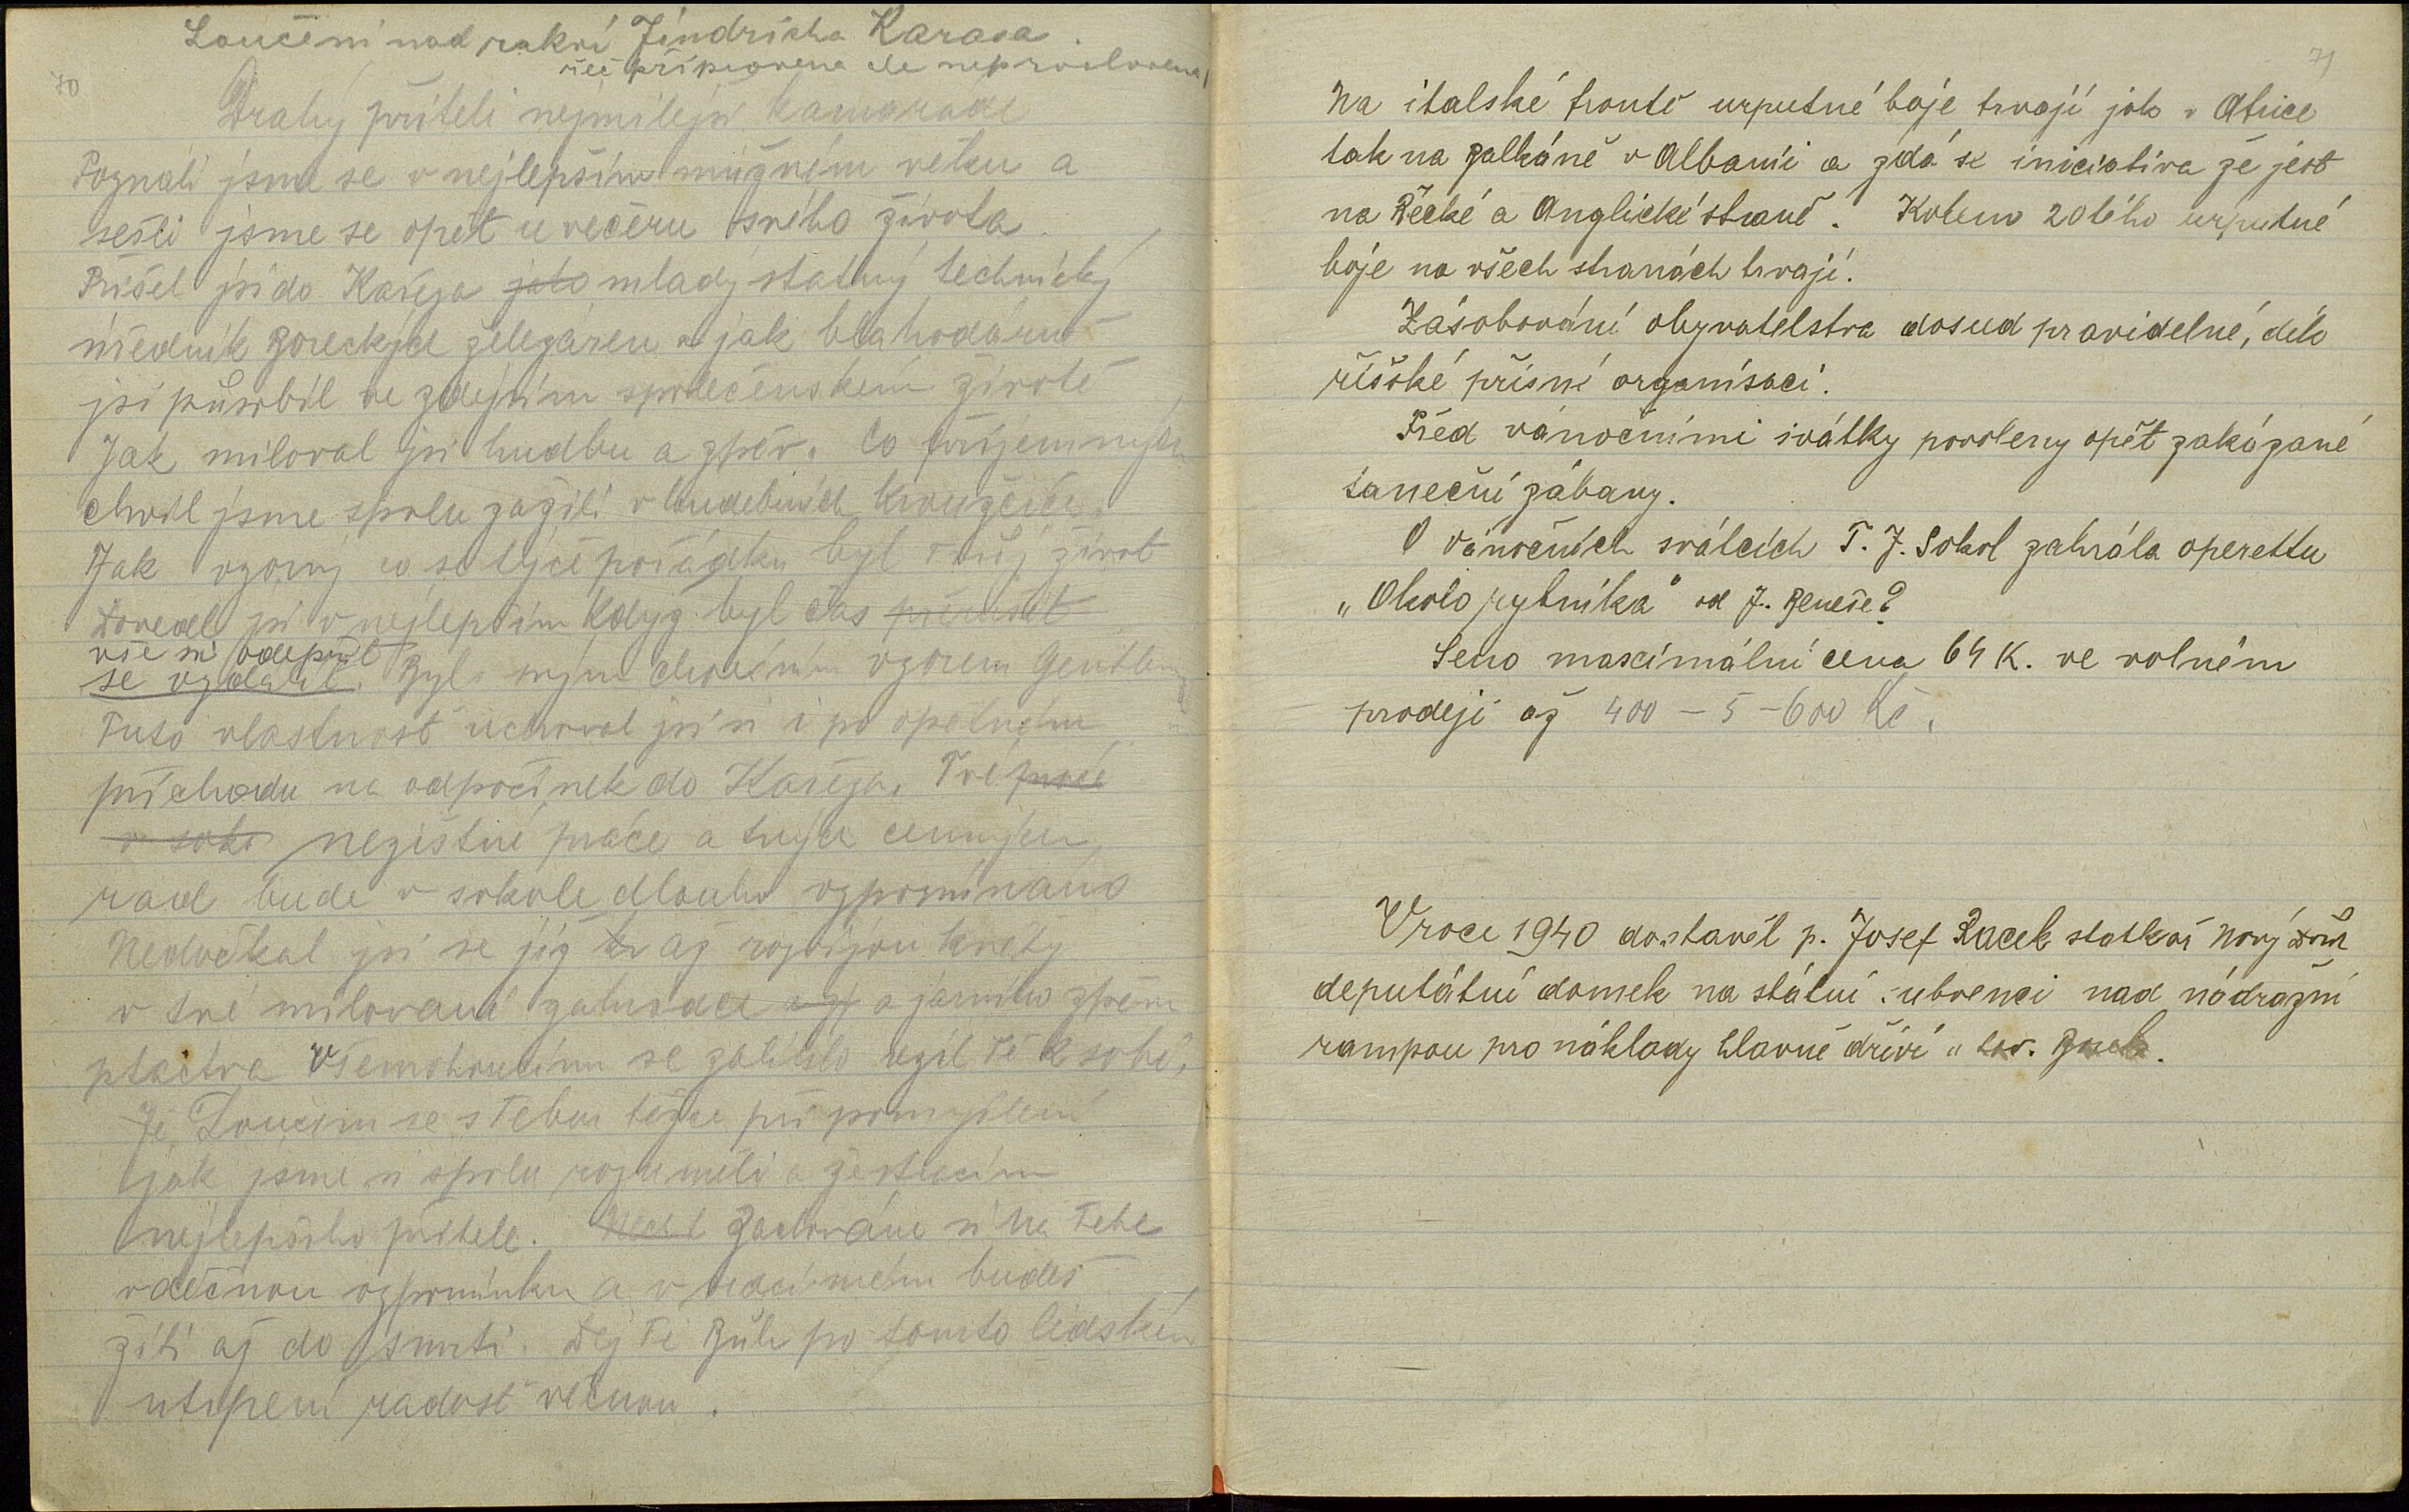 Loučení nad rakví Jindřicha Karasa.
řeč připravena ale neproslovena
70
Drahý příteli nejmilejší kamaráde
Poznali jsme se v nejlepším mužném věku a
sešli jsme se opět u večeru svého života.
Přišel jsi do Kařeza jako mladý statný technický
úředník Boreckých železáren a jak blahodárně
jsi působil ve zdejším společenském životě
Jak miloval jsi hudbu a zpěv. Co příjemných
chvil jsme spolu zažili v hudebních kroužcích.
Jak vzorný co se týče pořádku byl tvůj život
Dovedl jsi v nejlepším když byl čas přerušit
vše si odepřít
se vzdálit. Byl svým chováním vzorem Gentlem
Tuto vlastnost uchoval jsi si i po opětném
příchodu na odpočinek do Kařeza. Tvé práce
v soko nezištné práce a tvých cenných
rad bude v sokole dlouho vzpomínáno
Nedočkal jsi se již až rozvijou květy
v tvé milované zahrádce a jarního zpěvu
ptactva Všemohoucímu se zalíbilo vzíti Tě k sobě.
Loučím se s Tebou těžce při pomyšlení
jak jsme si spolu rozuměli a že ztrácím
nejlepšího přítele. Zachováme si na Tebe
vděčnou vzpomínku a v srdci mém budeš
žíti až do smrti. Dej Ti Bůh po tomto lidském
utrpení radost věčnou.
71
Na italské frontě urputné boje trvají jak v Africe
tak na Balkáně v Albanii a zdá se iniciativa že jest
na Řecké a Anglické straně. Kolem 20tého urputné
boje na všech stranách trvají.
Zásobování obyvatelstva dosud pravidelné, dík
říšské přísné organisaci.
Před vánočními svátky povoleny opět zakázané
taneční zábavy.
O vánočních svátcích T. J. Sokol zahrála operettu
„Okolo rybníka" od J. Beneše?
Seno maximální cena 64 K. ve volném
prodeji až 400 – 5 – 600 Kč.
V roce 1940 dostavěl p. Josef Bacek statkář nový dům
deputátní domek na státní subvenci nad nádražní
rampou pro náklady hlavně dříví